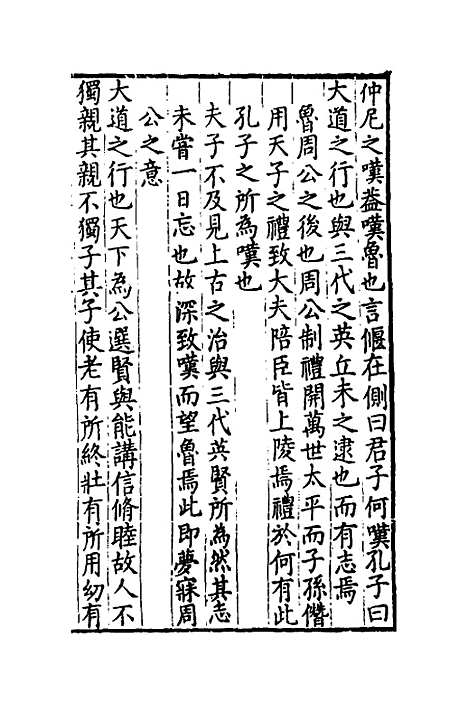 仲尼之嘆葢嘆魯也言偃在側曰君子何嘆孔子曰
大道之行也與三代之英丘未之逮也而有志焉
魯周公之後也周公制禮開萬世太平而子孫僭
用天子之禮致大夫陪臣皆上陵焉禮於何有此
孔子之所為嘆也
夫子不及見上古之治與三代英賢所為然其志
未嘗一日忘也故深致嘆而望魯焉此即夢寐周
公之意
大道之行也天下為公選賢與能講信脩睦故人不
獨親其親不獨子其子使老有所終壯有所用幼有